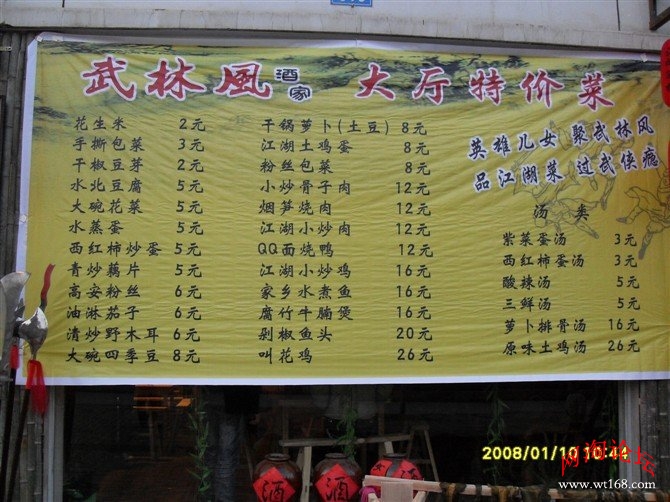 武林風酒家 大厅特价菜
英雄儿女聚武林风
品江湖菜过武侠瘾
花生米 2元
手撕包菜 3元
干椒豆芽 2元
水北豆腐 5元
大碗花菜 5元
水蒸蛋 5元
西红柿炒蛋 5元
青炒藕片 5元
高安粉丝 6元
油淋茄子 6元
清炒野木耳 6元
大碗四季豆 8元
干锅萝卜(土豆) 8元
江湖土鸡蛋 8元
粉丝包菜 8元
小炒骨子肉 12元
烟笋烧肉 12元
江湖小炒肉 12元
QQ面烧鸭 12元
江湖小炒鸡 16元
家乡水煮鱼 16元
腐竹牛腩煲 16元
剁椒鱼头 20元
叫花鸡 26元
汤类
紫菜蛋汤 3元
西红柿蛋汤 3元
酸辣汤 5元
三鲜汤 5元
萝卜排骨汤 16元
原味土鸡汤 26元
酒
酒
酒
2008/01/10 10:44
www.wt168.com